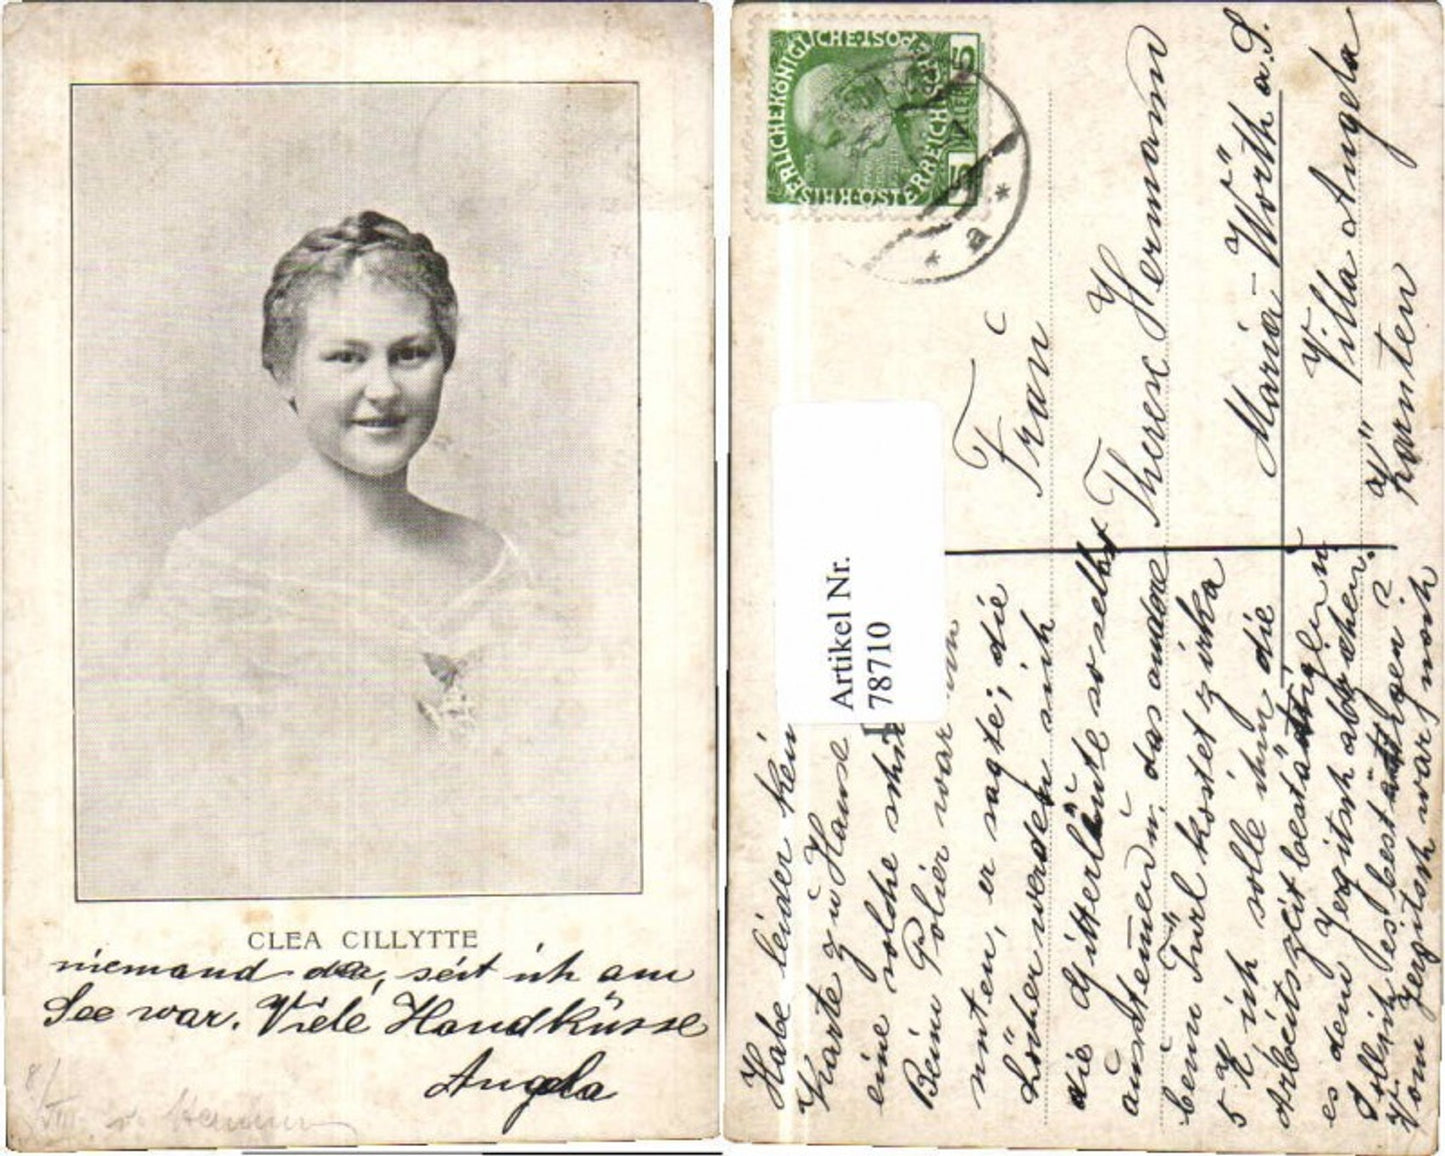 CLEA CILLYTTE
niemand da, seit ich am
See war. Viele Handküsse
Angela
KAISERLICHEKÖNIGLICHE ÖSTERREICHISCHE POST
5
5
* a *
Frau
Therese Hermann
Maria-Wörth a. S.
Villa Angela
Kärnten
Artikel Nr.
78710
Habe leider kein
Karte zu Hause
eine solche
Beim Polier war
unten, er sagte; die
Löcher werden sich
die Gitterleute so selbst
ausstemmen u. das andere
beim Türl kostet zirka
5 K ich solle ihm die
Arbeitszeit bestätigen u
es dem Jergitsch abziehen.
Soll ich es bestätigen?
Vom Jergitsch war noch